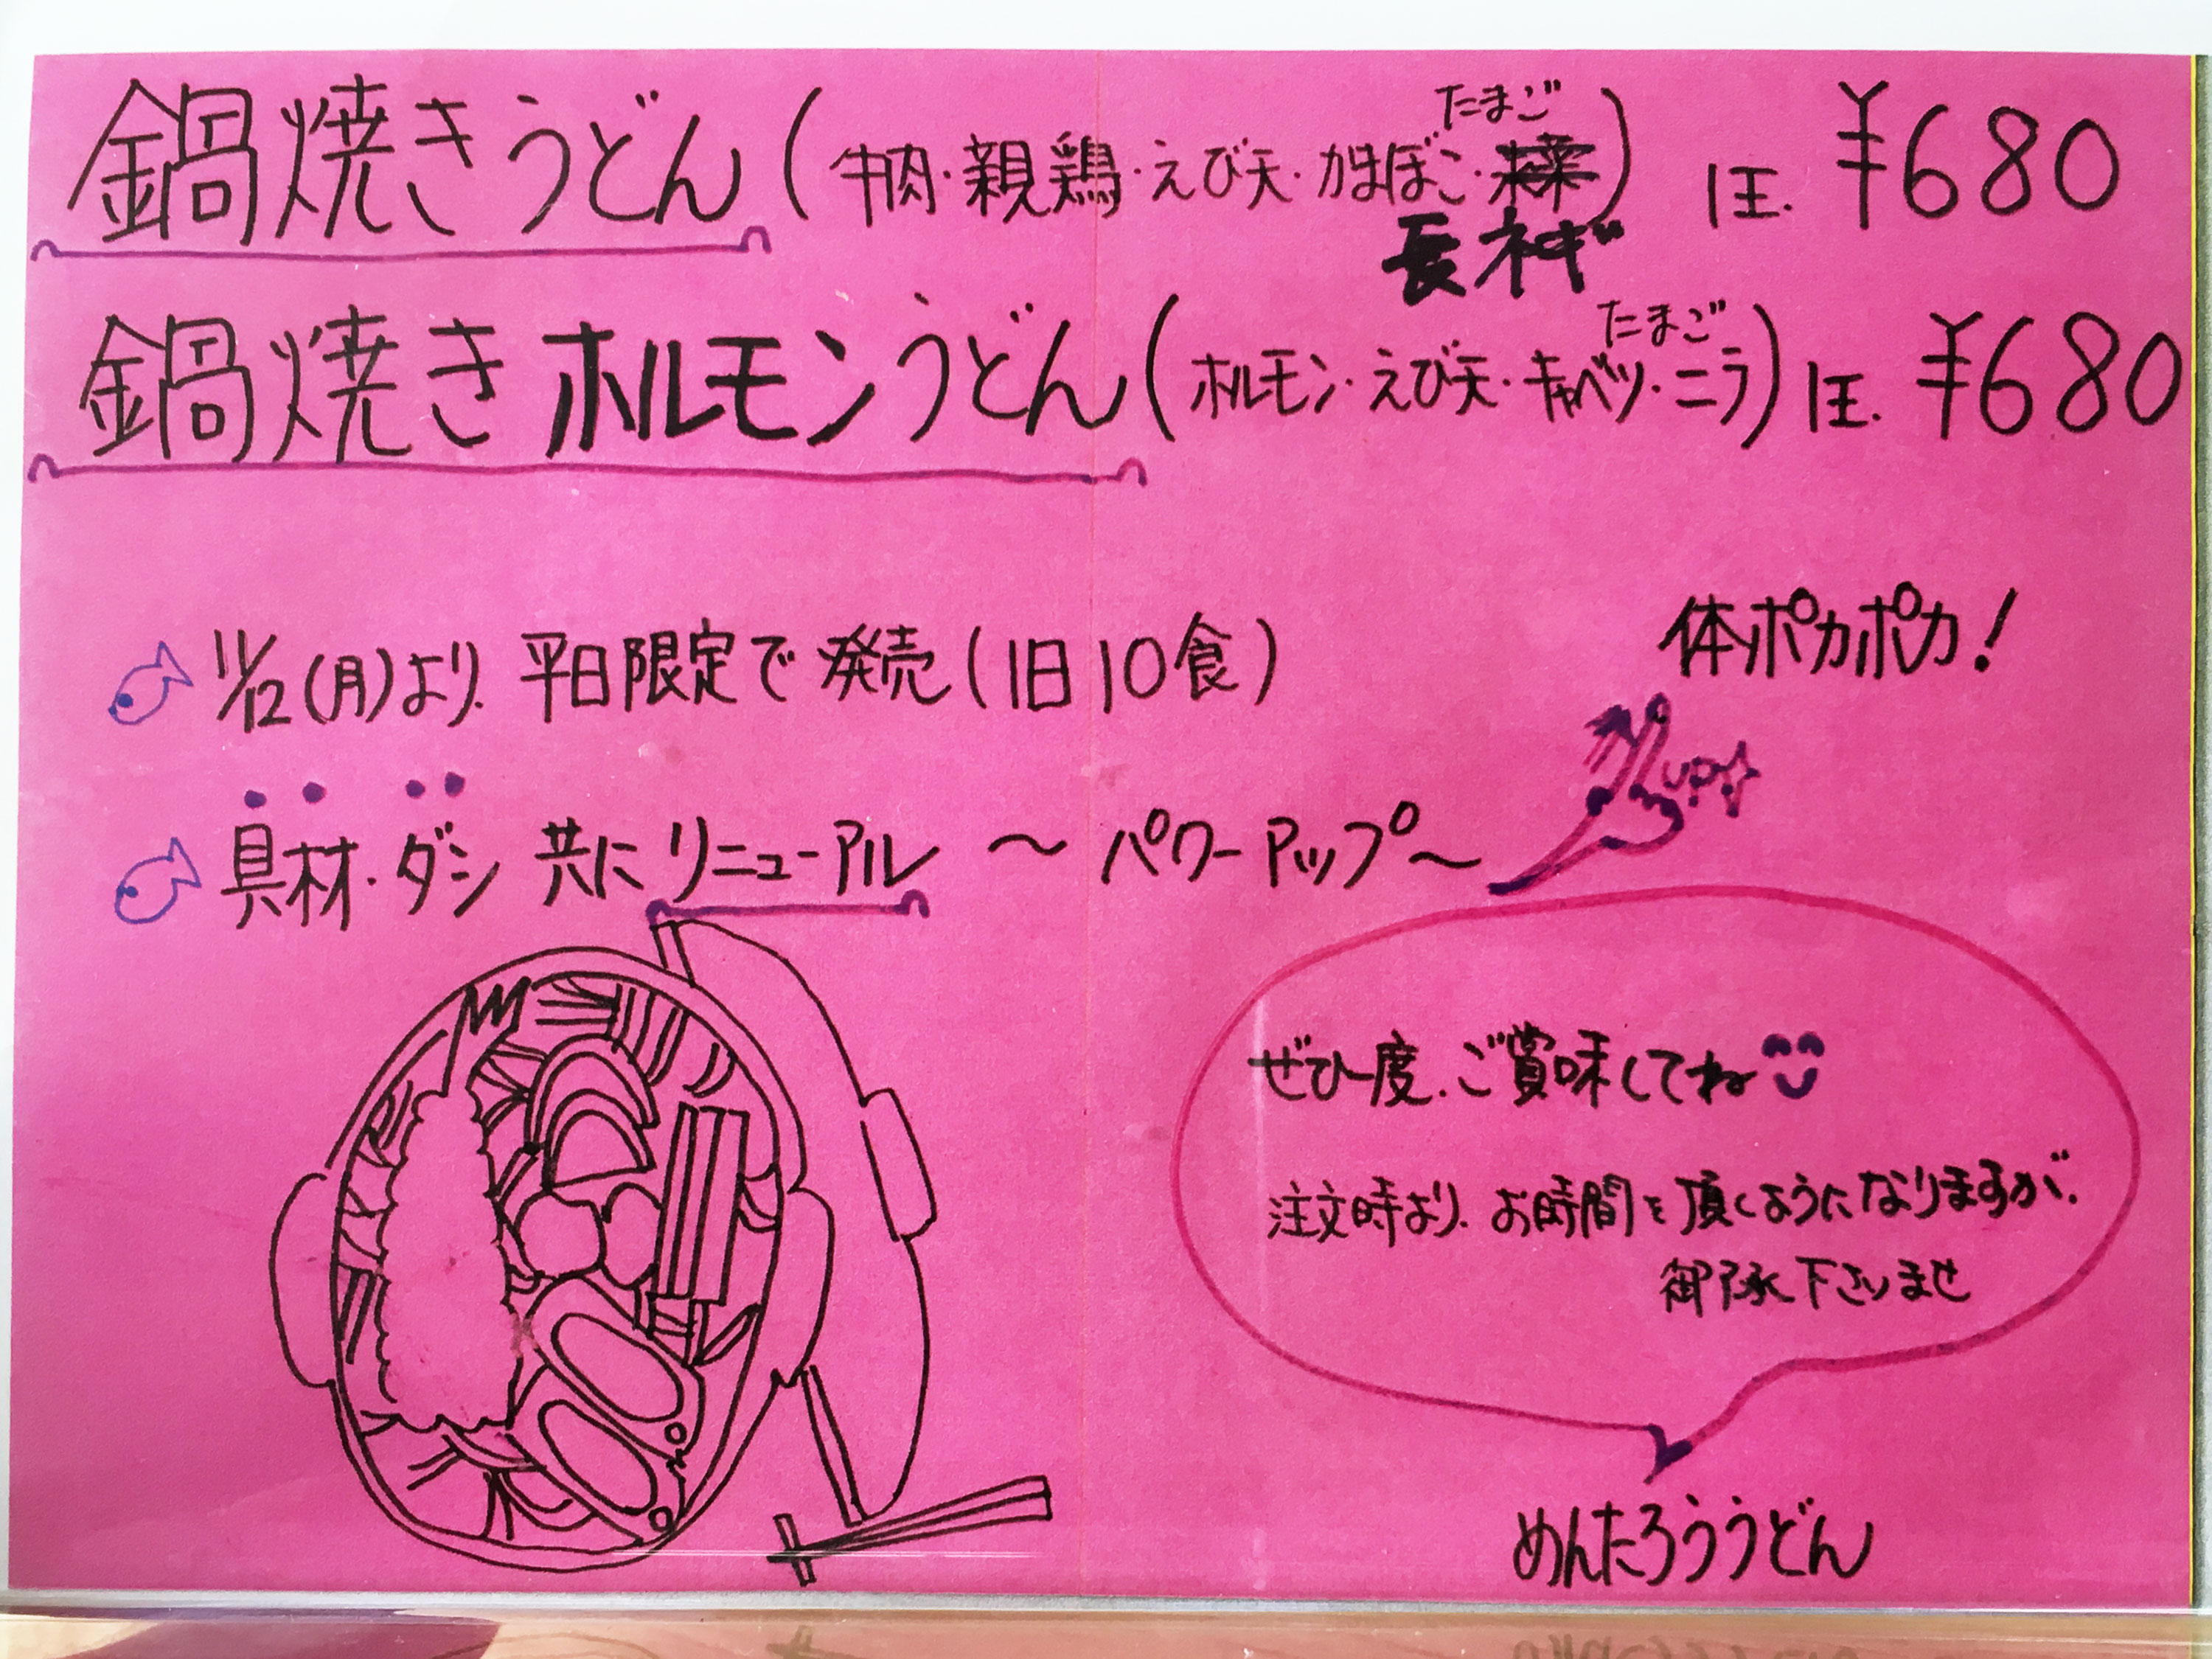 たまご
鍋焼きうどん(牛肉・親鶏・えび天・かまぼこ・) 1玉. ¥680
長ネギ
たまご
鍋焼きホルモンうどん(ホルモン・えび天・キャベツ・ニラ) 1玉. ¥680
体ポカポカ!
11/12(月)より. 平日限定で発売(1日10食)
UP
具材・ダシ 共にリニューアル 〜パワーアップ〜
ぜひ一度.ご賞味してね
注文時より.お時間を頂くようになりますが.
御了承下さいませ
めんたろううどん